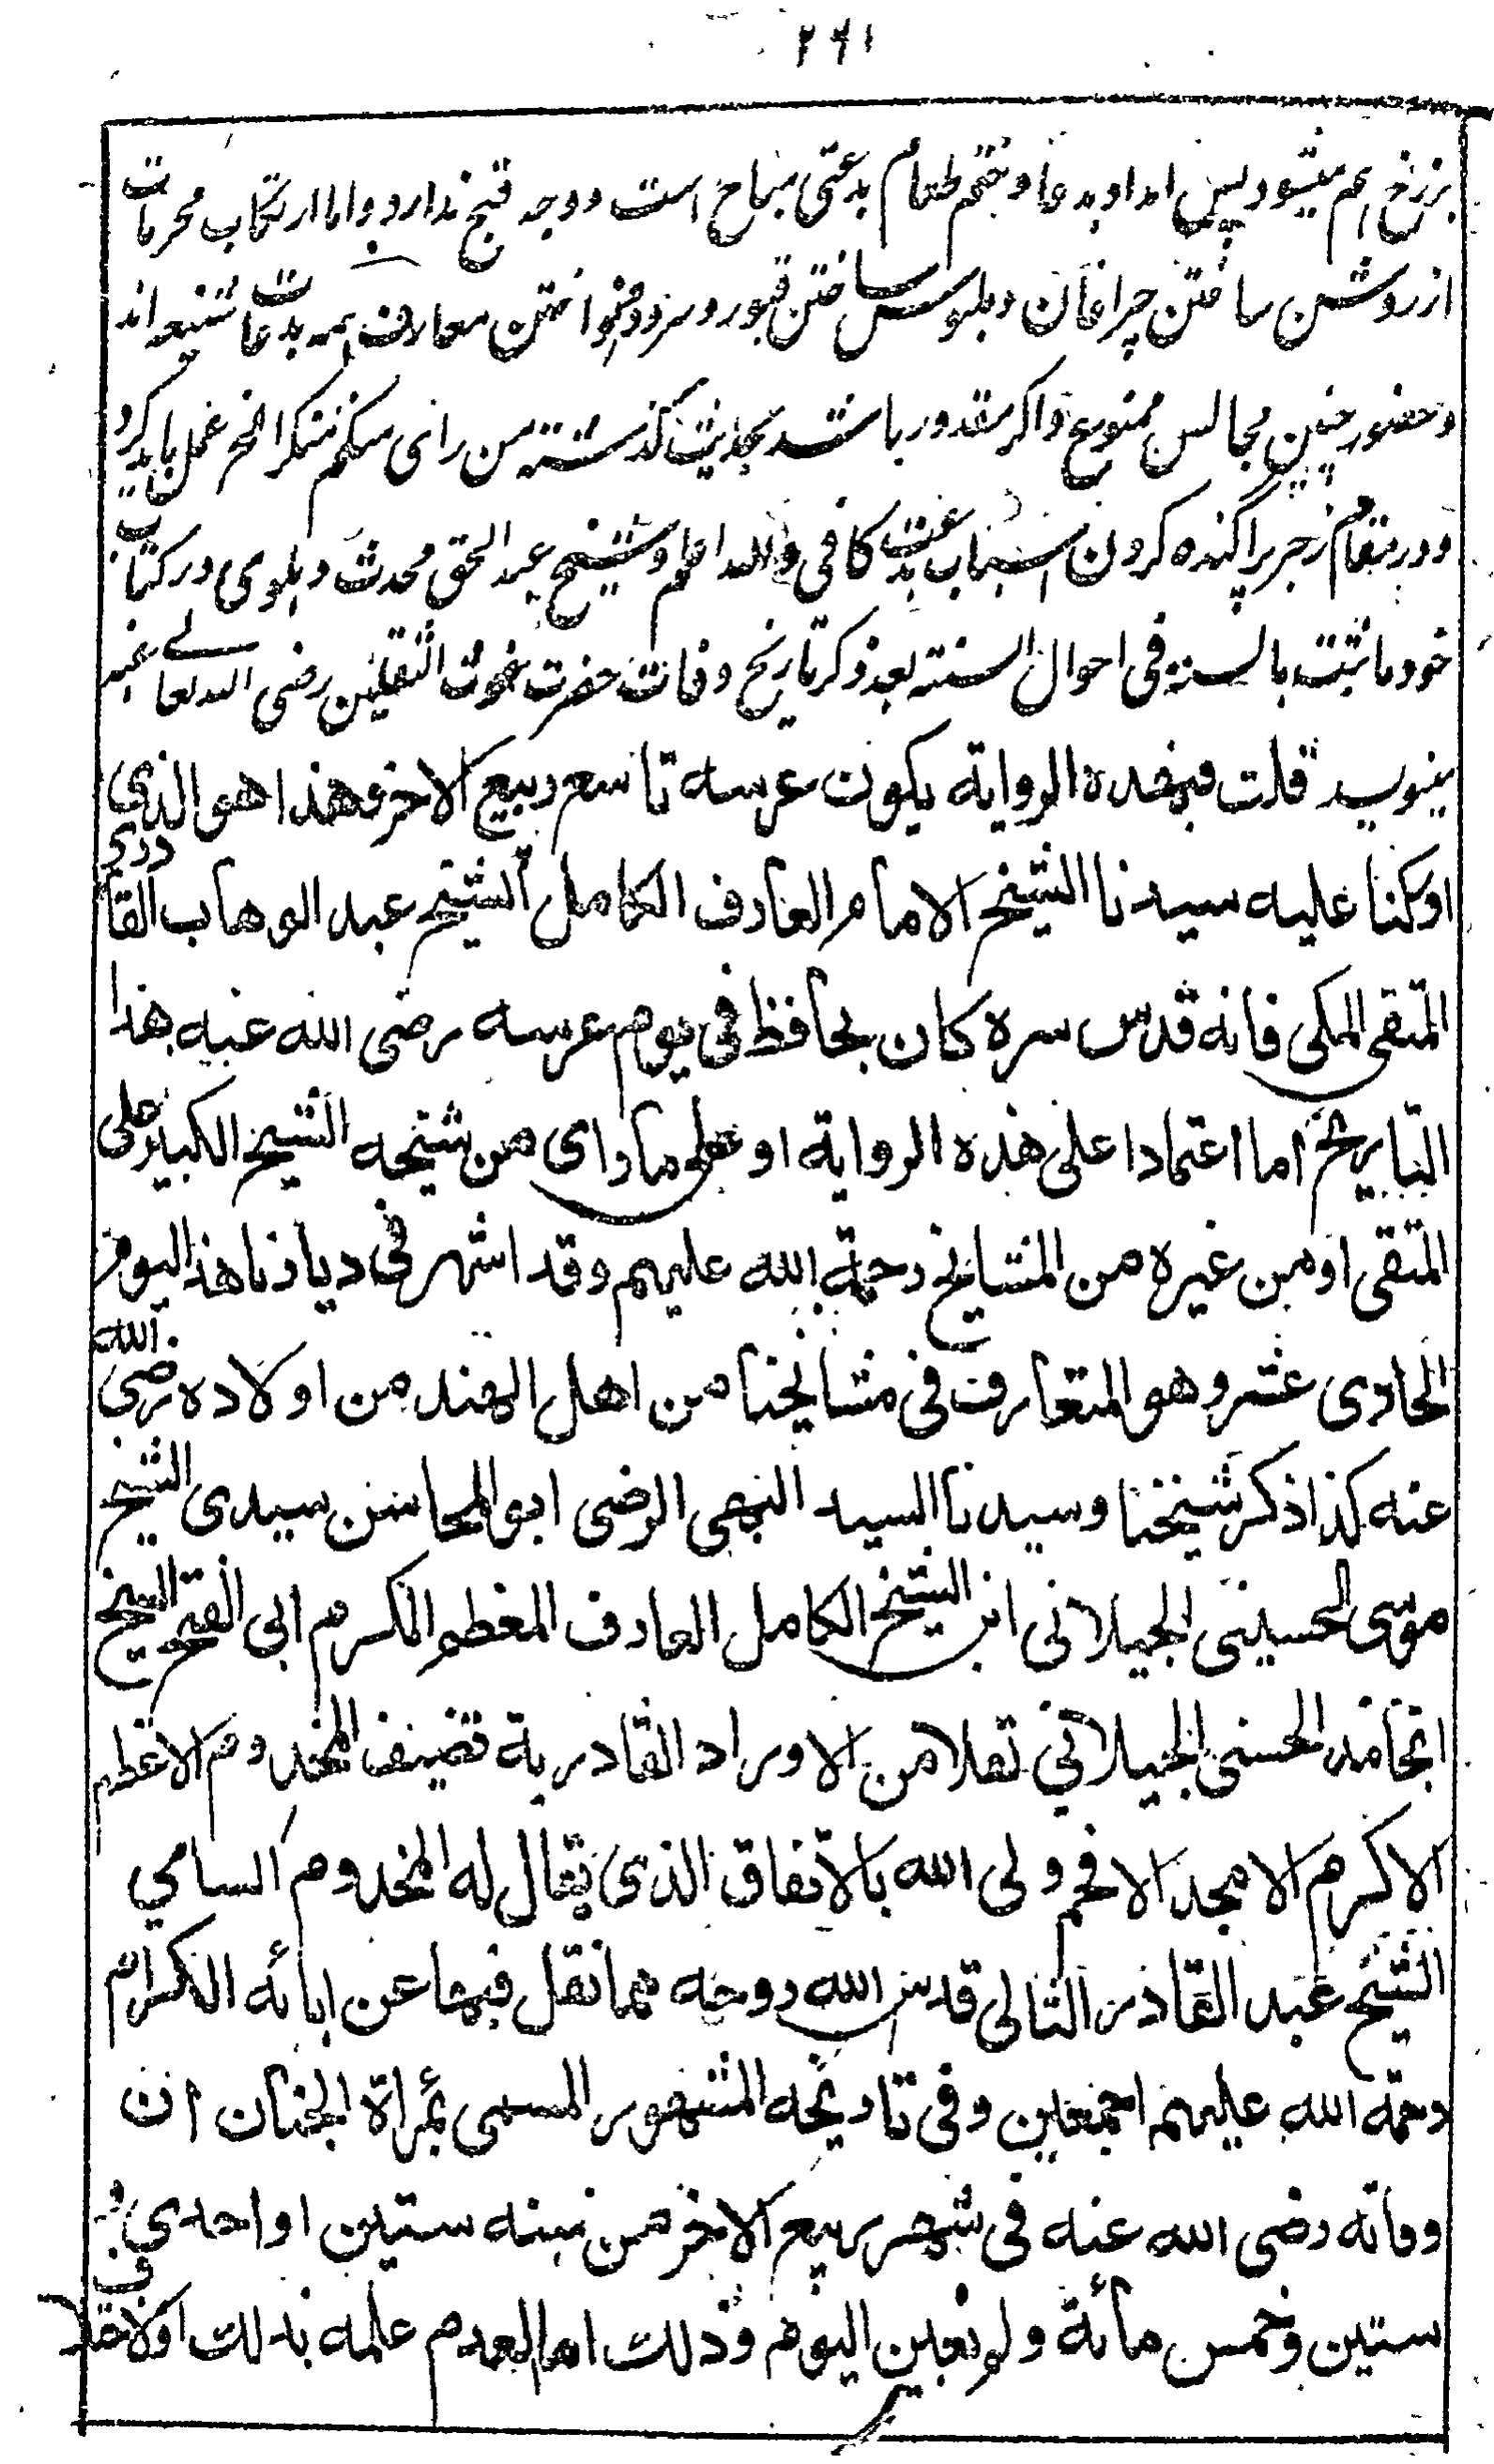 ۲۶۱
برزخ هم میشود پس امداد بدعا و ختم طعام بدعتی مباح است و وجه قبح ندارد و اما ارتکاب محرمات
از روشن ساختن چراغان و ملبوس ساختن قبور و سرود و نواختن معارف همه بدعات شنیعه اند
و حضور چنین مجالس ممنوع و اگر مقدور باشد بحدیث گذشته من رای منکم منکرا الخ عمل باید کرد
و در مقام زجر پراگنده کردن اسباب بدعت کافی والله اعلم و شیخ عبد الحق محدث دهلوی در کتاب
خود ما ثبت بالسنه فی احوال السنته بعد ذکر تاریخ وفات حضرت غوث الثقلین رضی الله تعالے عنه
مینویسد قلت فبهذه الرواية يكون عرسه تاسع ربيع الاخر وهذا هو الذى
ادركنا عليه سيدنا الشيخ الامام العارف الكامل الشيخ عبد الوهاب القادرى
المتقى المكى فانه قدس سره كان يحافظ فى يوم عرسه رضى الله عنه هذا
التاريخ اما اعتمادا على هذه الرواية او على ما راى من شيخه الشيخ الكبير على
المتقى او من غيره من المشايخ رحمة الله عليهم وقد اشهر فى ديارنا هذا اليوم
الحادى عشر وهو المتعارف فى مشايخنا من اهل الهند من اولاده رضى الله
عنه كذا ذكر شيخنا وسيدنا السيد البهى الرضى ابو المحاسن سيدى الشيخ
موسى الحسينى الجيلانى ابن الشيخ الكامل العارف المعظم المكرم ابى الفتح الشيخ
الحسنى الجيلانى نقلا من الاوراد القادرية تصنيف المخدوم الاعظم
الاكرم الامجد الافخم ولى الله بالاتفاق الذى يقال له المخدوم السامي
الشيخ عبد القادر الثانى قدس الله روحه مما نقل فيها عن ابائه الكرام
رحمة الله عليهم اجمعين وفى تاريخه المشهور المسمى بمراة الجنان ان
وفاته رضى الله عنه فى شهر ربيع الاخر من سنه ستين او احدى و
ستين وخمس مائة ولم يعين اليوم وذلك اما لعدم علمه بذلك او لاختلاف